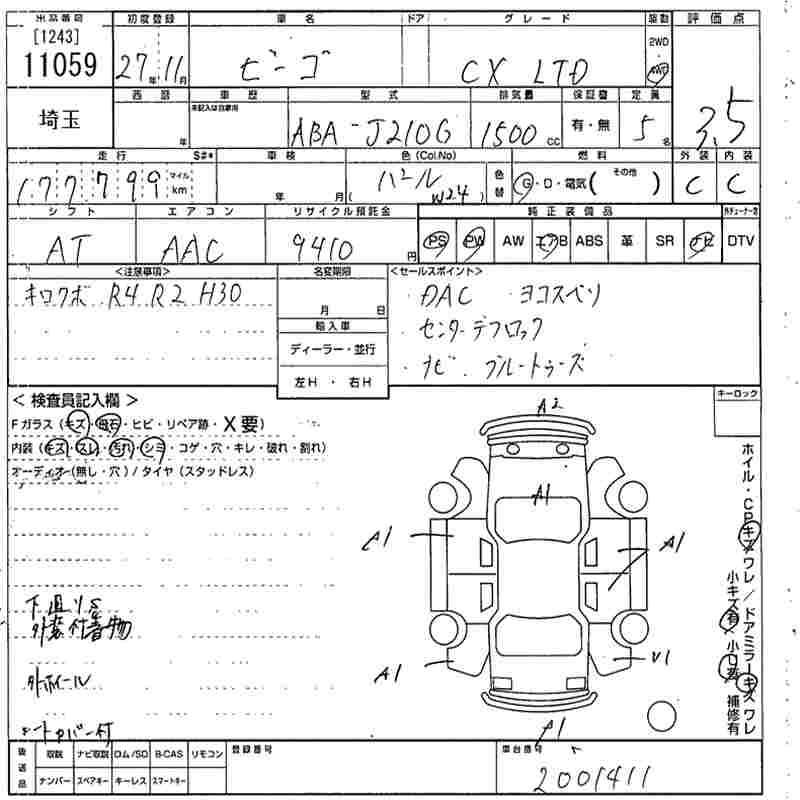 出品番号 初度登録 車名 ドア グレード 駆動 評価点
[1243] 2WD
11059 27年 11月 ビーゴ CX LTD 4WD
埼玉 西暦 車歴 型式 排気量 保証書 定員 3.5
未記入は自家用
年 ABA-J210G 1500cc 有・無 5名
走行 S#* 車検 色(Col.No) 燃料 外装 内装
177799 マイル km 年 月 パール W24 色替 G・D・電気( その他 ) C C
シフト エアコン リサイクル預託金 純正装備品
AT AAC 9410円 PS PW AW エアB ABS 革 SR ナビ DTV
<注意事項> 名変期限 <セールスポイント>
キロクボ R4 R2 H30 月 日 DAC ヨコスベリ
輸入車 センターデフロック
ディーラー・並行 ナビ ブルートゥーズ
左H・右H
<検査員記入欄> キーロック
Fガラス(キズ・飛石・ヒビ・リペア跡・X要)
内装(キズ・スレ・汚れ・シミ・コゲ・穴・キレ・破れ・割れ)
オーディオ(無し・穴)/タイヤ(スタッドレス)
A2
A1
A1 A1
A1 V1
A1
ホイル・CPキズワレ/ドアミラーキズワレ
小キズ有 小凹有 補修有
下廻りS
外装付着物
外ホイール
シートカバー付
後送品 取説 ナビ取説 ロム/SD B-CAS リモコン 登録番号 車台番号
ナンバー スペアキー キーレス スマートキー 2001411